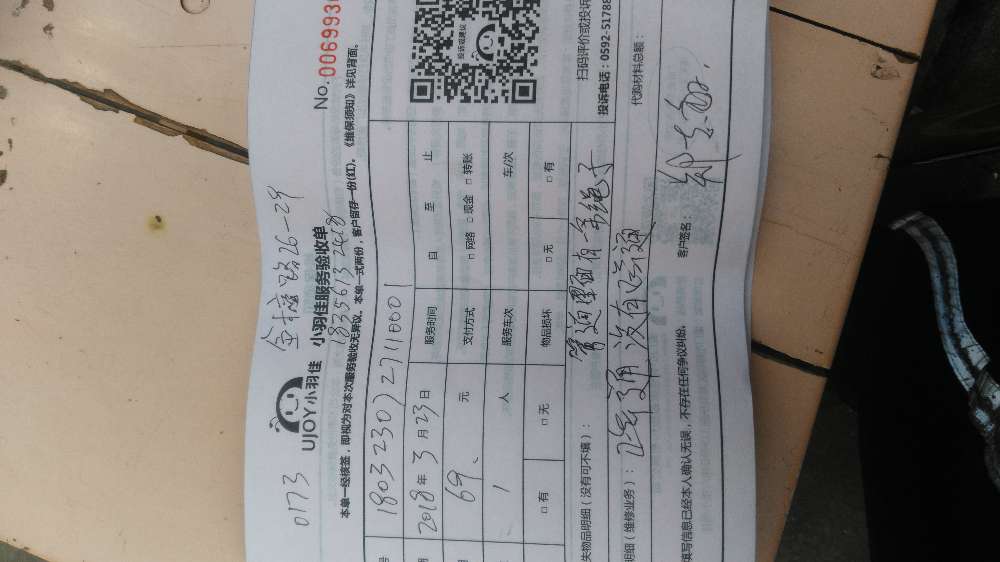 0173 金榜路26-29
UJOY小羽佳 小羽佳服务验收单 No.0069936
本单一经核签，即视为对本次服务验收无异议。本单一式两份，客户留存一份(红)。《维保须知》详见背面。
号 1803230927110001
2018年3月23日 服务时间 自 至 止
69、元 支付方式 □网络 □现金 □转账
1 人 服务车次 车/次
□有 □无 物品损坏 □无 □有
投诉或建议
失物品明细（没有可不填）： 管道里面有一条绳子 扫码评价或投诉
投诉电话：0592-51788
明细（维修业务）： 疏通 没有疏通 代购材料总额：
填写信息已经本人确认无误，不存在任何争议纠纷。 客户签名：